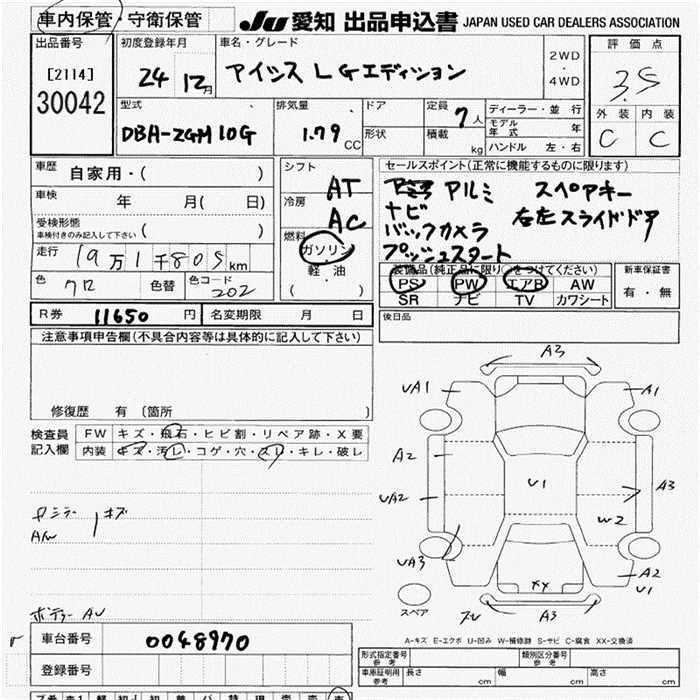 車内保管・守衛保管
JU 愛知 出品申込書 JAPAN USED CAR DEALERS ASSOCIATION
出品番号
[2114]
30042
初度登録年月
24 12月
車名・グレード
アイシス L Gエディション
2WD
・
4WD
評価点
3.5
外装 内装
C C
型式
DBA-ZGM10G
排気量
1.79 CC
ドア
形状
定員 7人
積載 kg
ディーラー・並行
モデル年式 年
ハンドル 左・右
車歴 自家用・( )
車検 年 月( 日)
受検形態
車検付きのみ記入して下さい ( )
走行 19万1千805km
色 クロ 色替 色コード 202
シフト AT
冷房 AC
燃料
ガソリン
・
軽・油
( )
セールスポイント(正常に機能するものに限ります)
アルミ スペアキー
ナビ 右左スライドドア
バックカメラ
プッシュスタート
装備品(純正品に限り○をつけてください)
PS PW エアB AW
SR ナビ TV カワシート
新車保証書
有・無
R券 11650円 名変期限 月 日
後日品
注意事項申告欄(不具合内容等は具体的に記入して下さい)
修復歴 有 (箇所 )
検査員
記入欄
FW キズ・飛石・ヒビ割・リペア跡・X要
内装 キズ・汚レ・コゲ・穴・スレ・キレ・破レ
キズ
ボデー AU
A3
UA1 A1
A2
U1
UA2 A3
W2
UA3
A2
U1
XX
スペア
A3
A-キズ E-エクボ U-凹み W-補修跡 S-サビ C-腐食 XX-交換済
車台番号 0048970
登録番号
形式指定番号
参考
類別区分番号
参考
車庫証明用
参考
長さ cm 幅 cm 高さ cm